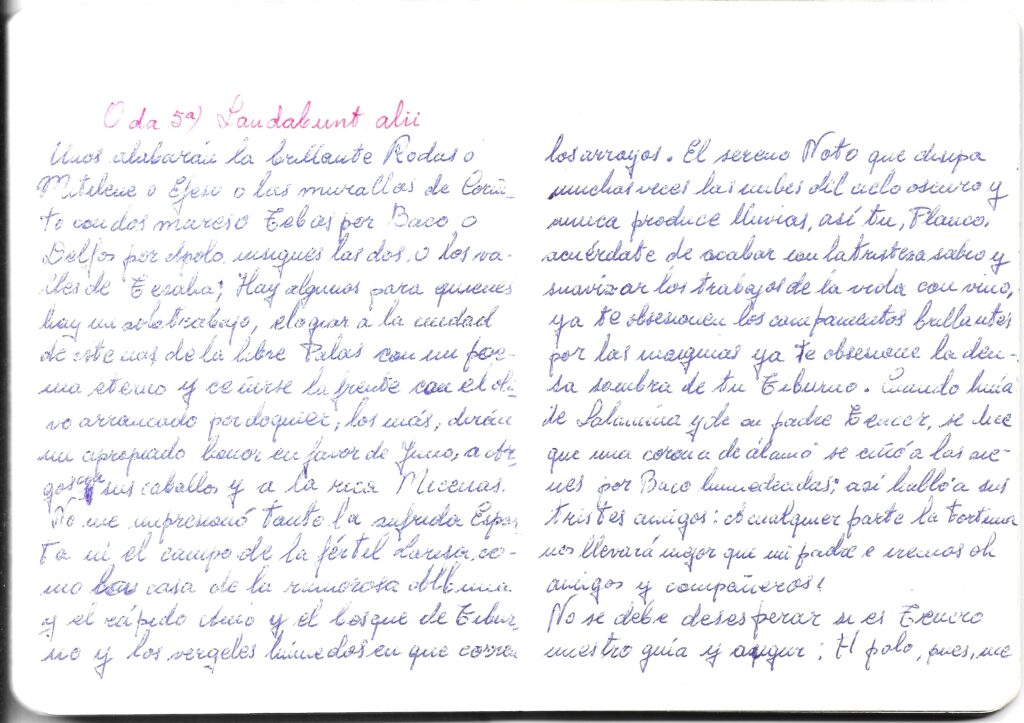 Oda 5ª) Laudabunt alii
Unos alabarán la brillante Rodas o
Mitilene o Efeso o las murallas de Corin-
to con dos mares o Tebas por Baco, o
Delfos por Apolo, insignes las dos, o los va-
lles de Tesalia; Hay algunos para quienes
hay un solo trabajo, elogiar a la ciudad
de de la libre Palas con un poe-
ma eterno y ceñirse la frente con el oli-
vo arrancado por doquier; los más, dirán
un apropiado honor en favor de Juno, a Ar-
gos con sus caballos y a la rica Micenas.
No me impresionó tanto la sufrida Espar-
ta ni el campo de la fértil Larisa, co-
mo la casa de la rumorosa Albunea
y el rápido Anio y el bosque de Tibur-
no y los vergeles húmedos en que corren
los arroyos. El sereno Noto que disipa
muchas veces las nubes del cielo oscuro y
nunca produce lluvias, así tu, Planco,
acuérdate de acabar con la tristeza sabio y
suavizar los trabajos de la vida con vino,
ya te obsesionen los campamentos brillantes
por las insignias ya te obsesione la den-
sa sombra de tu Tiburno. Cuando huía
de Salamina y de su padre Teucer, se dice
que una corona de álamo se ciñó a las sie-
nes por Baco humedecidas; así habló a sus
tristes amigos: A cualquier parte la fortuna
nos llevará mejor que mi padre e iremos oh
amigos y compañeros!
No se debe desesperar si es Teucro
nuestro guía y augur; Apolo, pues, me